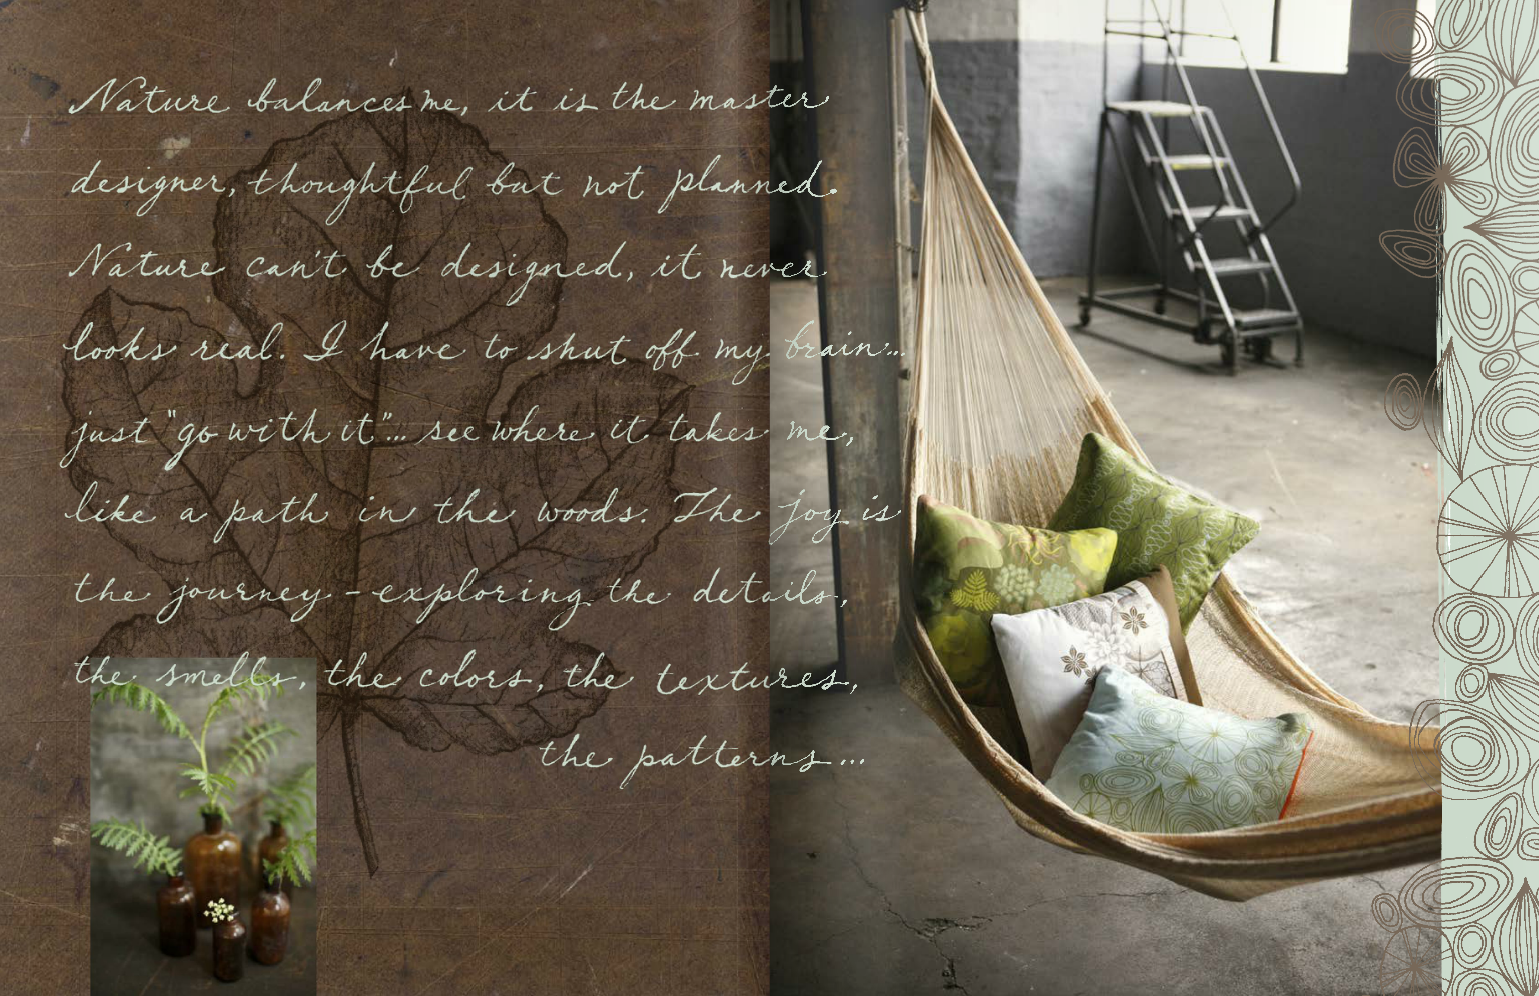 Nature balances me, it is the master
designer, thoughtful but not planned.
Nature can't be designed, it never
looks real. I have to shut off my brain...
just "go with it"... see where it takes me,
like a path in the woods. The joy is
the journey - exploring the details,
the smells, the colors, the textures,
the patterns...